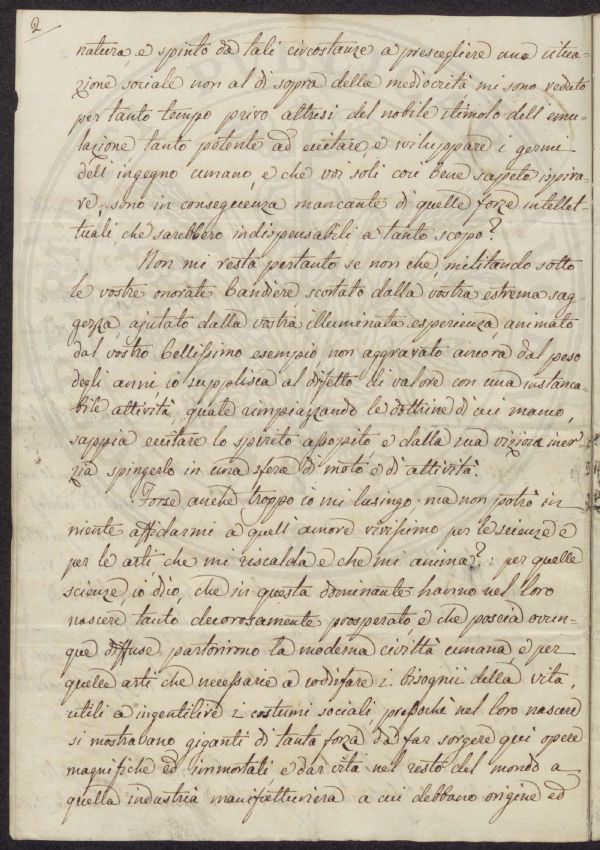 2
natura, e spinto da tali circostanze a prescegliere una situa=
zione sociale non al di sopra della mediocrità, mi sono veduto
per tanto tempo privo altresì del nobile stimolo dell'emu=
lazione tanto potente ad eccitare, e sviluppare i germi
dell'ingegno umano, e che voi soli così bene sapete ispira=
re, sono in conseguenza mancante di quelle forze intellet=
tuali, che sarebbero indispensabili a tanto scopo?
Non mi resta pertanto se non che, militando sotto
le vostre onorate bandiere scortato dalla vostra estrema sag=
gezza, ajutato dalla vostra illuminata esperienza, animato
dal vostro bellissimo esempio non aggravato ancora dal peso
degli anni io supplisca al difetto di valore con una instanca=
bile attività, quale rimpiazzando le dottrine di cui manco,
sappia eccitare lo spirito assopito, e dalla sua viziosa iner
zia spingerlo in una sfera di moto, e di attività.
Forse anche troppo io mi lusingo; ma non potrò in
niente affidarmi a quell'amore vivissimo per le scienze e
per le arti che mi riscalda e che mi anima?: per quelle
scienze, io dico, che in questa dominante hanno nel loro
nascere tanto decorosamente prosperato, e che poscia ovun=
que diffuse partorirono la moderna civiltà umana, e per
quelle arti che necessarie a soddisfare i bisogni della vita,
utili a ingentilire i costumi sociali pressochè nel loro nascere
si mostravano giganti di tanta forza da far sorgere qui opere
magnifiche ed immortali, e dar vita nel resto del mondo a
quella industria manifatturiera a cui debbano origine ed